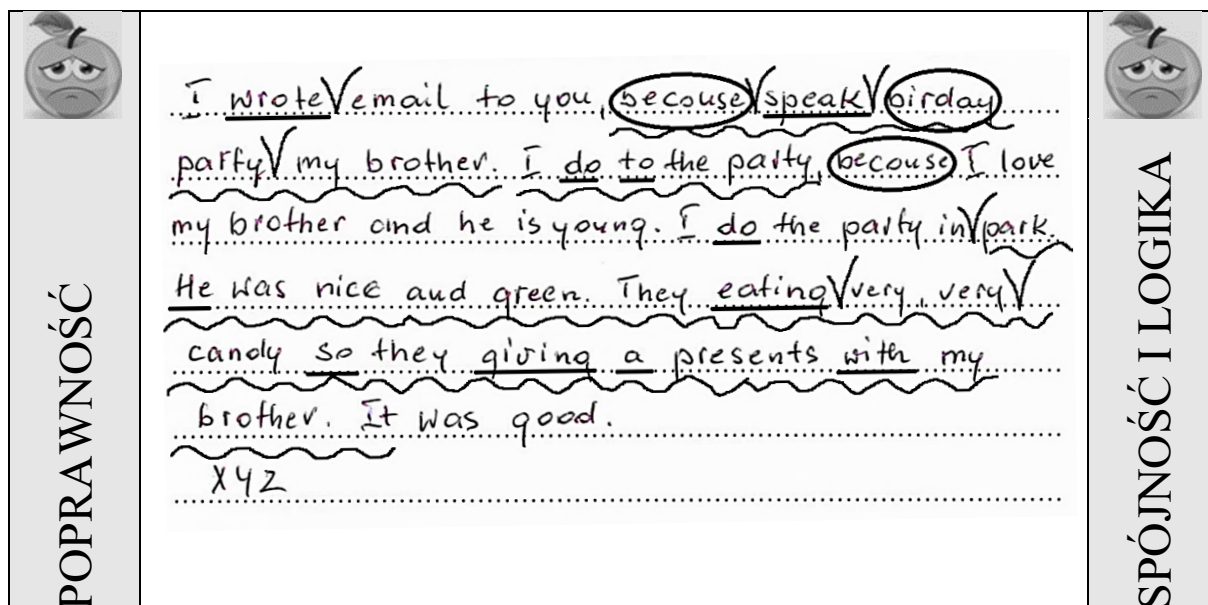 POPRAWNOŚĆ
I wrote email to you, becouse speak birday
party my brother. I do to the party, becouse I love
my brother and he is young. I do the party in park.
He was nice and green. They eating very, very
candy so they giving a presents with my
brother. It was good.
XYZ
SPÓJNOŚĆ I LOGIKA